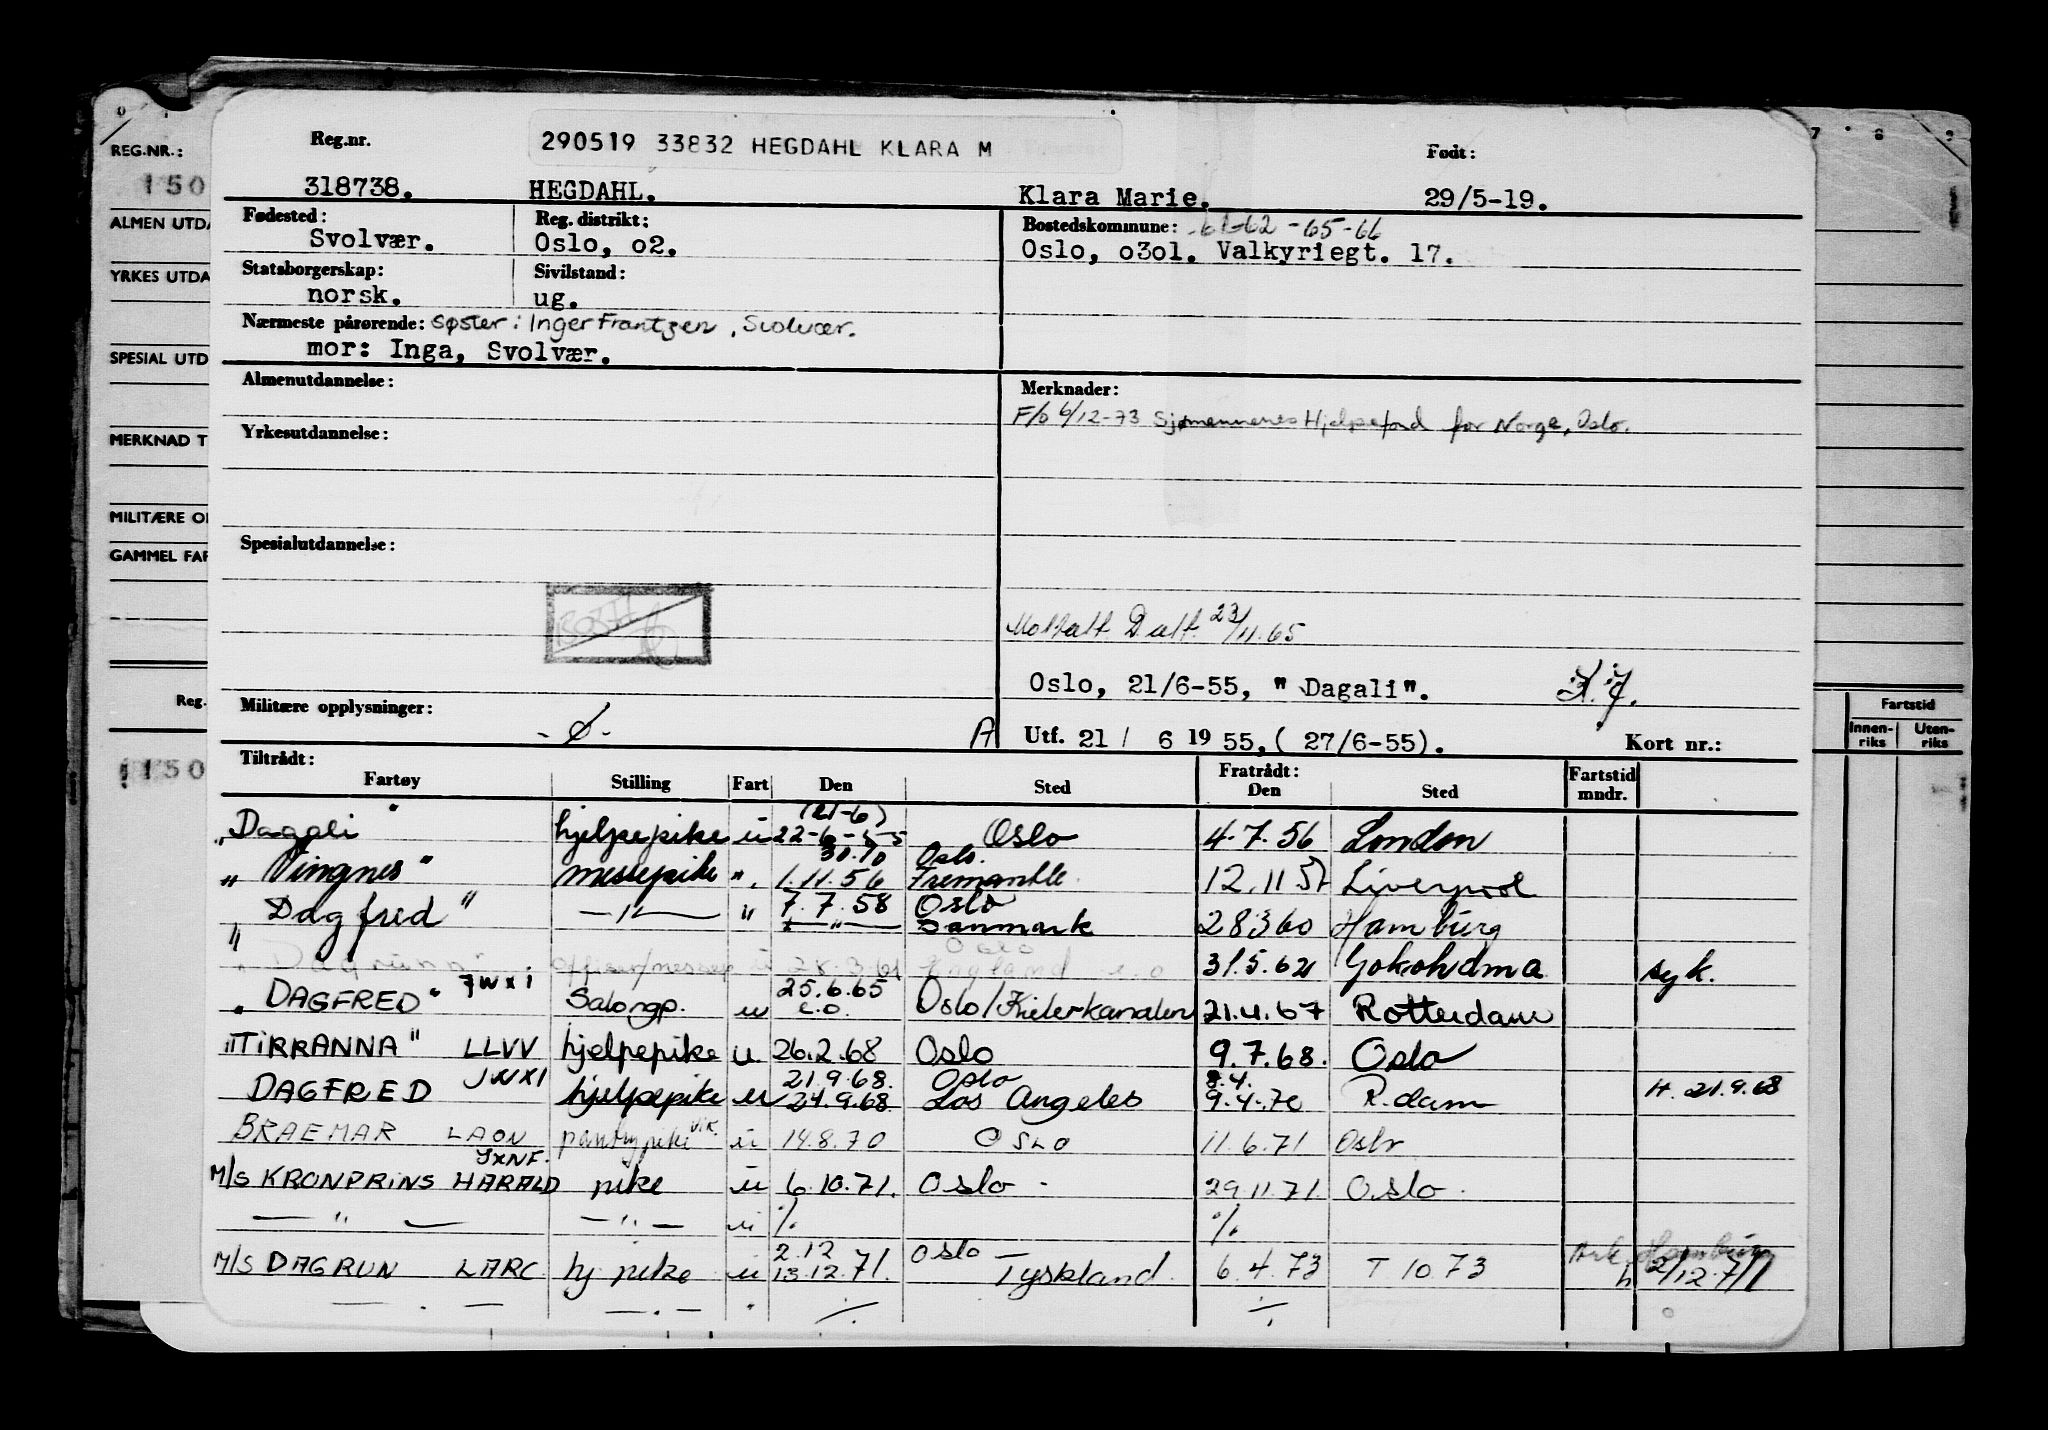 REG.NR.:
150
ALMEN UTDA
YRKES UTDA
SPESIAL UTD
MERKNAD T
MILITÆRE O
GAMMEL FAR
Reg.
150
Reg.nr. 290519 33832 HEGDAHL KLARA M Født:
318738. HEGDAHL. Klara Marie. 29/5-19.
Fødested: Reg. distrikt: Bostedskommune: -61-62-65-66
Svolvær. Oslo, o2. Oslo, o3ol. Valkyriegt. 17.
Statsborgerskap: Sivilstand:
norsk. ug.
Nærmeste pårørende: søster: Inger Frantzen, Svolvær.
mor: Inga, Svolvær.
Almenutdannelse: Merknader:
F/o 6/12-73 Sjømennenes Hjelpefond for Norge, Oslo.
Yrkesutdannelse:
Spesialutdannelse:
Mottatt 23/11.65
Oslo, 21/6-55, " Dagali".
Militære opplysninger: -Ø- A Utf. 21/ 6 1955,( 27/6-55). Kort nr.:
Tiltrådt: Fratrådt: Fartstid
Fartøy Stilling Fart Den Sted Den Sted mndr.
Fartstid
Innen-riks Uten-riks
(21-6)
"Dagali" hjelpepike u 22-6-55 Oslo 4.7.56 London
30.10 Oslo.
" Vingnes" messepike ". 1.11.56 Fremantle. 12.11.57 Liverpool
7.7.58 Oslo
" Dagfred" —"— " —"— Danmark 28360 Hamburg
Oslo
" Dagrunn" u 28.3.61 England e.o 31.5.62 Yokohama syk.
25.6.65
" DAGFRED" JWXI Salongp. u e.o. Oslo/Kielerkanalen 21.4.67 Rotterdam
"TIRRANNA" LLVV hjelpepike u 26.2.68 Oslo 9.7.68. Oslo
21.9.68. Oslo 8.4.
DAGFRED JWXI hjelpepike u 24.9.68 Los Angeles 9.4.70 R.dam H. 21.9.68
BRAEMAR LAON pantrypike vik. u 14.8.70 OSLO 11.6.71 Oslo
JXNF.
M/S KRONPRINS HARALD pike u 6.10.71. Oslo - 29.11.71 Oslo.
— " — — " — u % %
2.12 Oslo
M/S DAGRUN LARC hj pike u 13.12.71. Tyskland 6.4.73 T 10 73 h 2/12.71
— . — — . — " ./. ./.